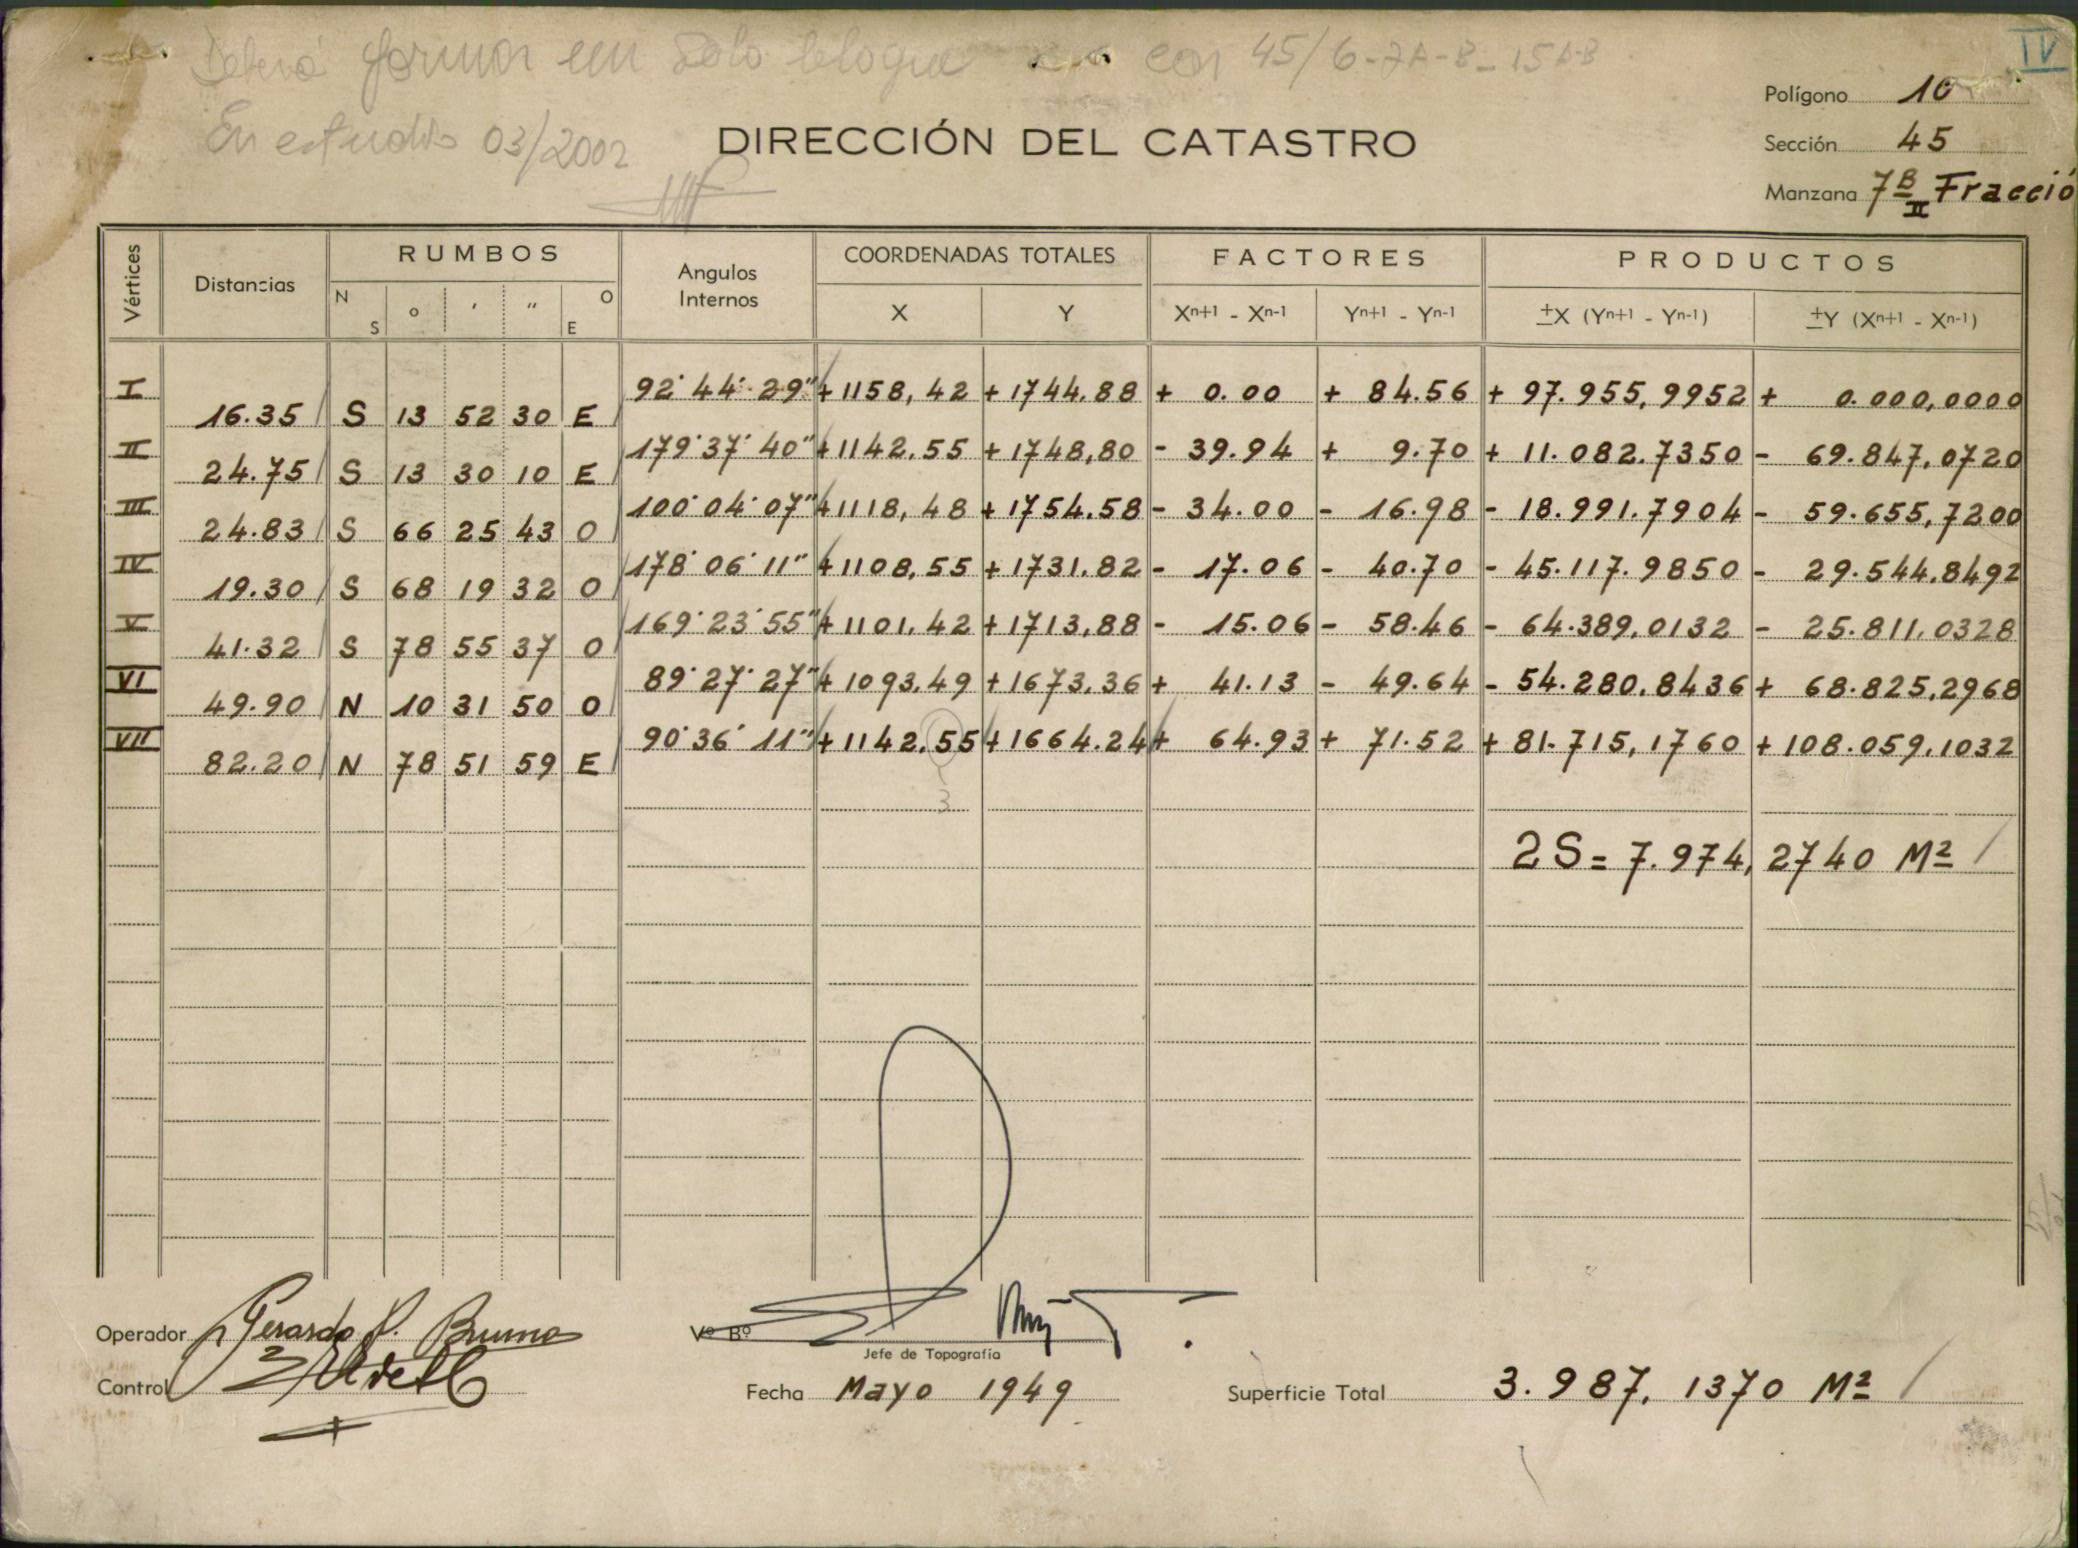 Deberá formar un solo bloque con 45/6-7A-B-15A-B
IV
En estudio 03/2002
DIRECCIÓN DEL CATASTRO
Polígono 10
Sección 45
Manzana 7B II Fracció
Vértices Distancias RUMBOS Angulos Internos COORDENADAS TOTALES FACTORES PRODUCTOS
N S o ' " O E X Y Xn+1 - Xn-1 Yn+1 - Yn-1 ±X (Yn+1 - Yn-1) ±Y (Xn+1 - Xn-1)
I 92° 44' 29" +1158,42 +1744.88 + 0.00 + 84.56 + 97.955,9952 + 0.000,0000
16.35 S 13 52 30 E
II 179° 37' 40" +1142.55 +1748,80 - 39.94 + 9.70 + 11.082.7350 - 69.847,0720
24.75 S 13 30 10 E
III 100° 04' 07" +1118,48 +1754.58 - 34.00 - 16.98 - 18.991.7904 - 59.655,7200
24.83 S 66 25 43 O
IV 178° 06' 11" +1108,55 +1731.82 - 17.06 - 40.70 - 45.117.9850 - 29.544.8492
19.30 S 68 19 32 O
V 169° 23' 55" +1101,42 +1713,88 - 15.06 - 58.46 - 64.389,0132 - 25.811,0328
41.32 S 78 55 37 O
VI 89° 27' 27" +1093,49 +1673,36 + 41.13 - 49.64 - 54.280,8436 + 68.825,2968
49.90 N 10 31 50 O
VII 90° 36' 11" +1142,55 +1664.24 + 64.93 + 71.52 + 81.715,1760 + 108.059,1032
82.20 N 78 51 59 E
3
2S = 7.974,2740 M2
Operador Gerardo P. Bruno
Vº Bº
Jefe de Topografía
Control
Fecha Mayo 1949
Superficie Total 3.987,1370 M2